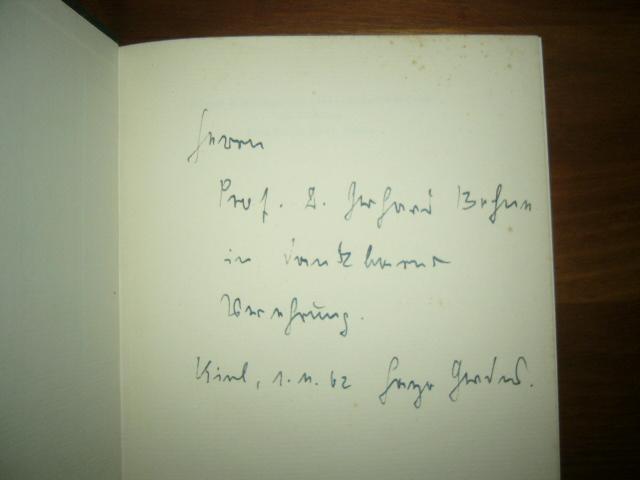 Herrn
Prof. D. Gerhard Bohne
in dankbarer
Verehrung.
Kiel, 1.11.62 Hayo Gerdes.